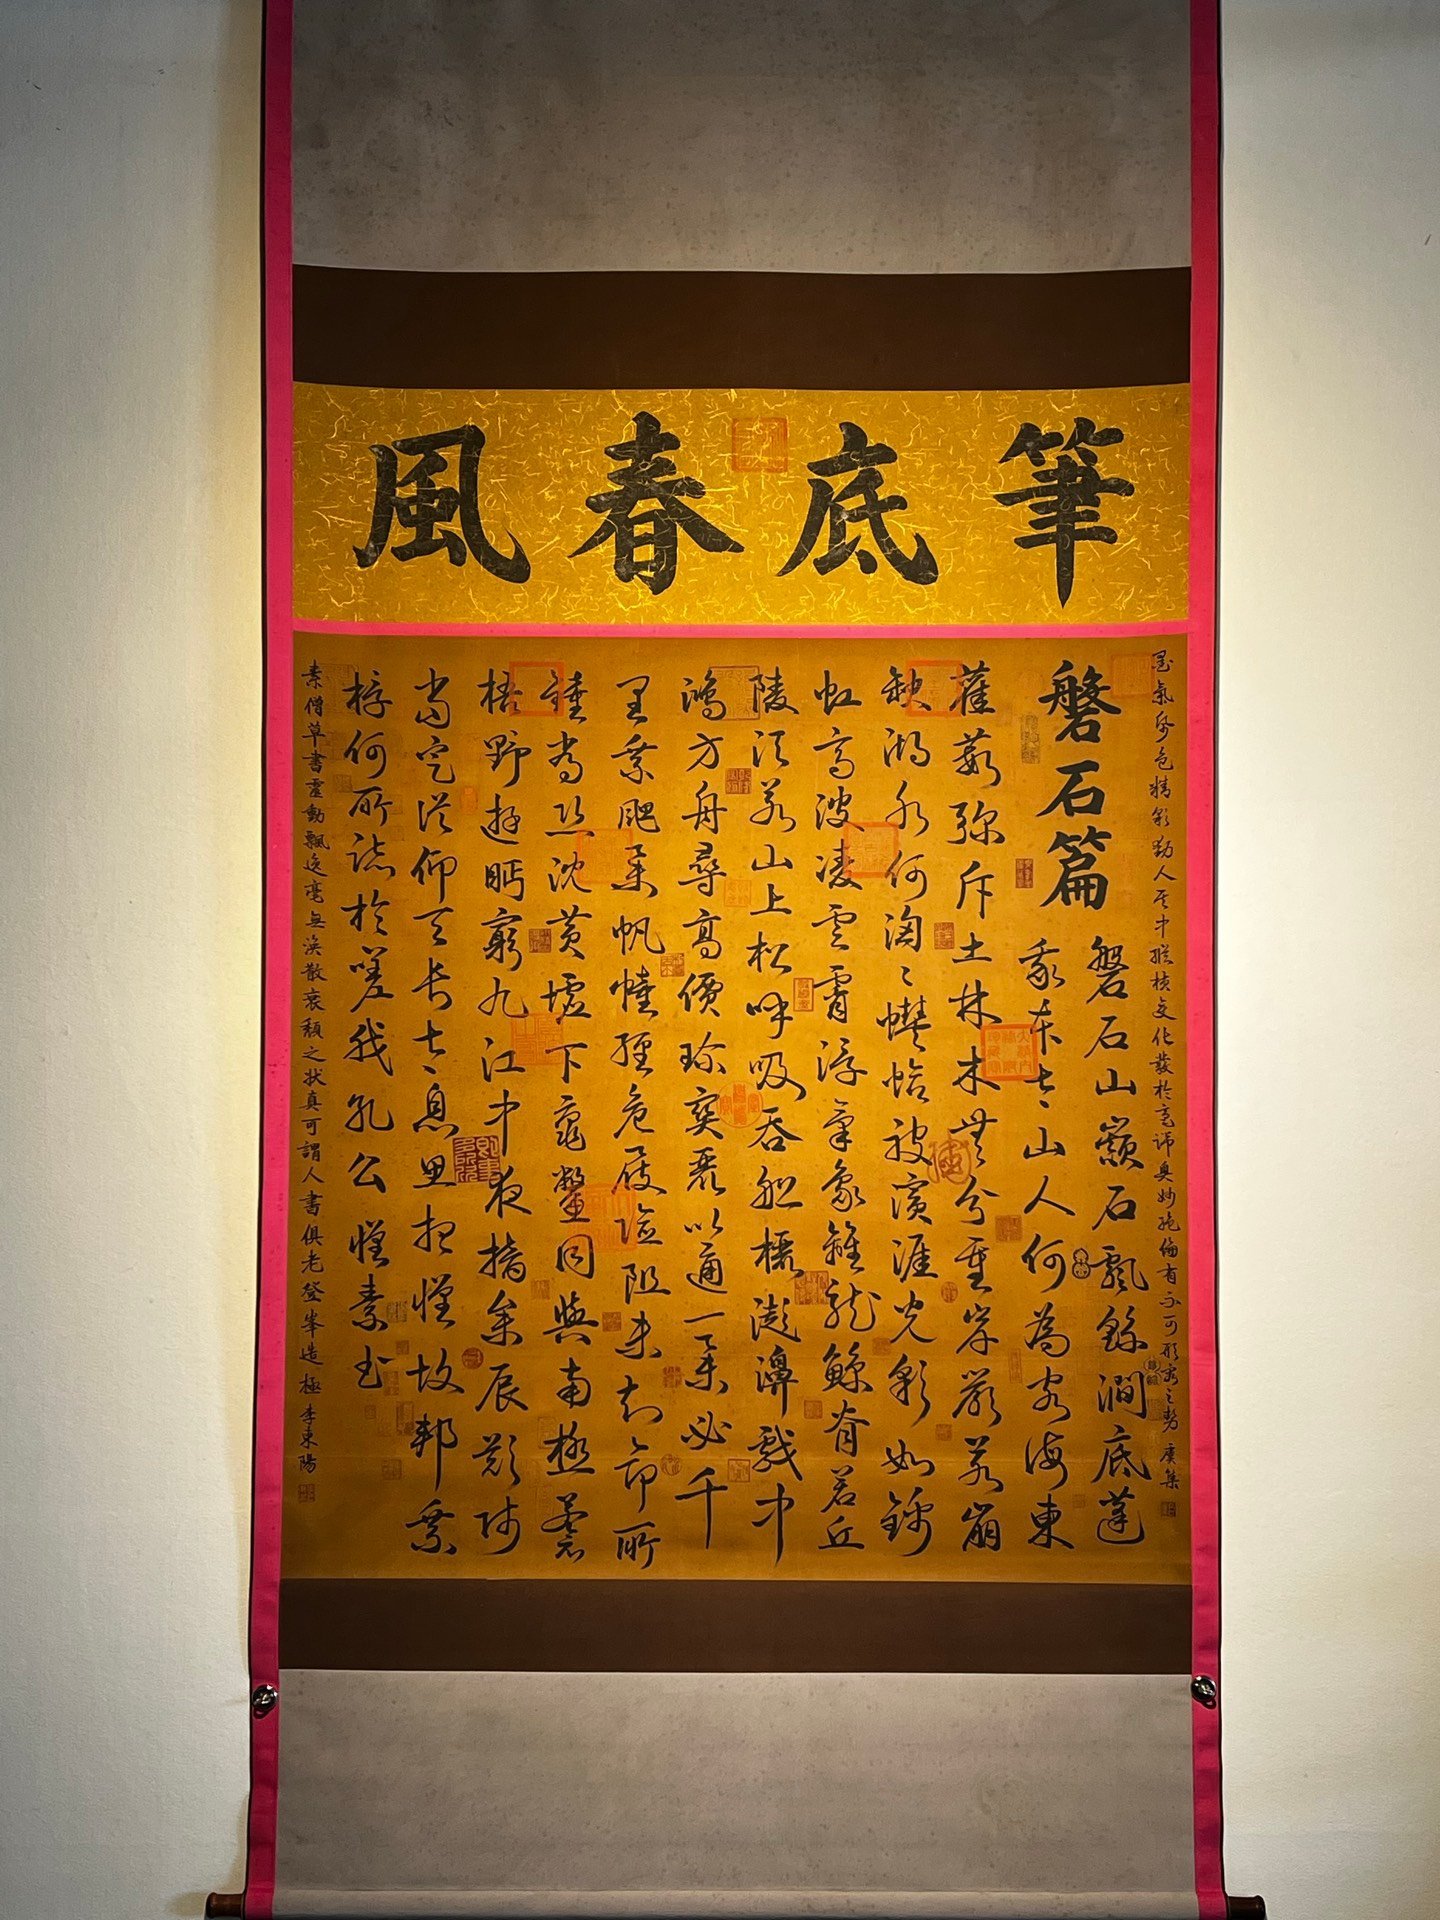 筆底春風
墨氣多色精彩動人其中縱橫變化發於毫端奧妙絕倫有不可形容之勢 虞集
磐石篇
磐石山巔石飄颻澗底蓬
我本太山人何為客海東
葭彌斥土林木無分重岸巖若崩
缺湖水何洶〻蛤被濱涯光彩如錦
虹高波凌雲霄浮氣象離龍鯨脊若丘
陵須若山上松呼吸吞船欐澎濞戲中
鴻方舟尋高價珍寶麗以通一舉必千
里乘颸舉帆幢經危履險阻未知命所
鍾常恐沈黃壚下黿鱉同與南極蒼
梧野遊眄窮九江中夜指參辰欲師
當定從仰天長太〻息思想懷故邦乘
桴何所志於嗟我孔公懷素書
素僧草書靈動飄逸毫無渙散衰頹之狀真可謂人書俱老登峯造極 李東陽